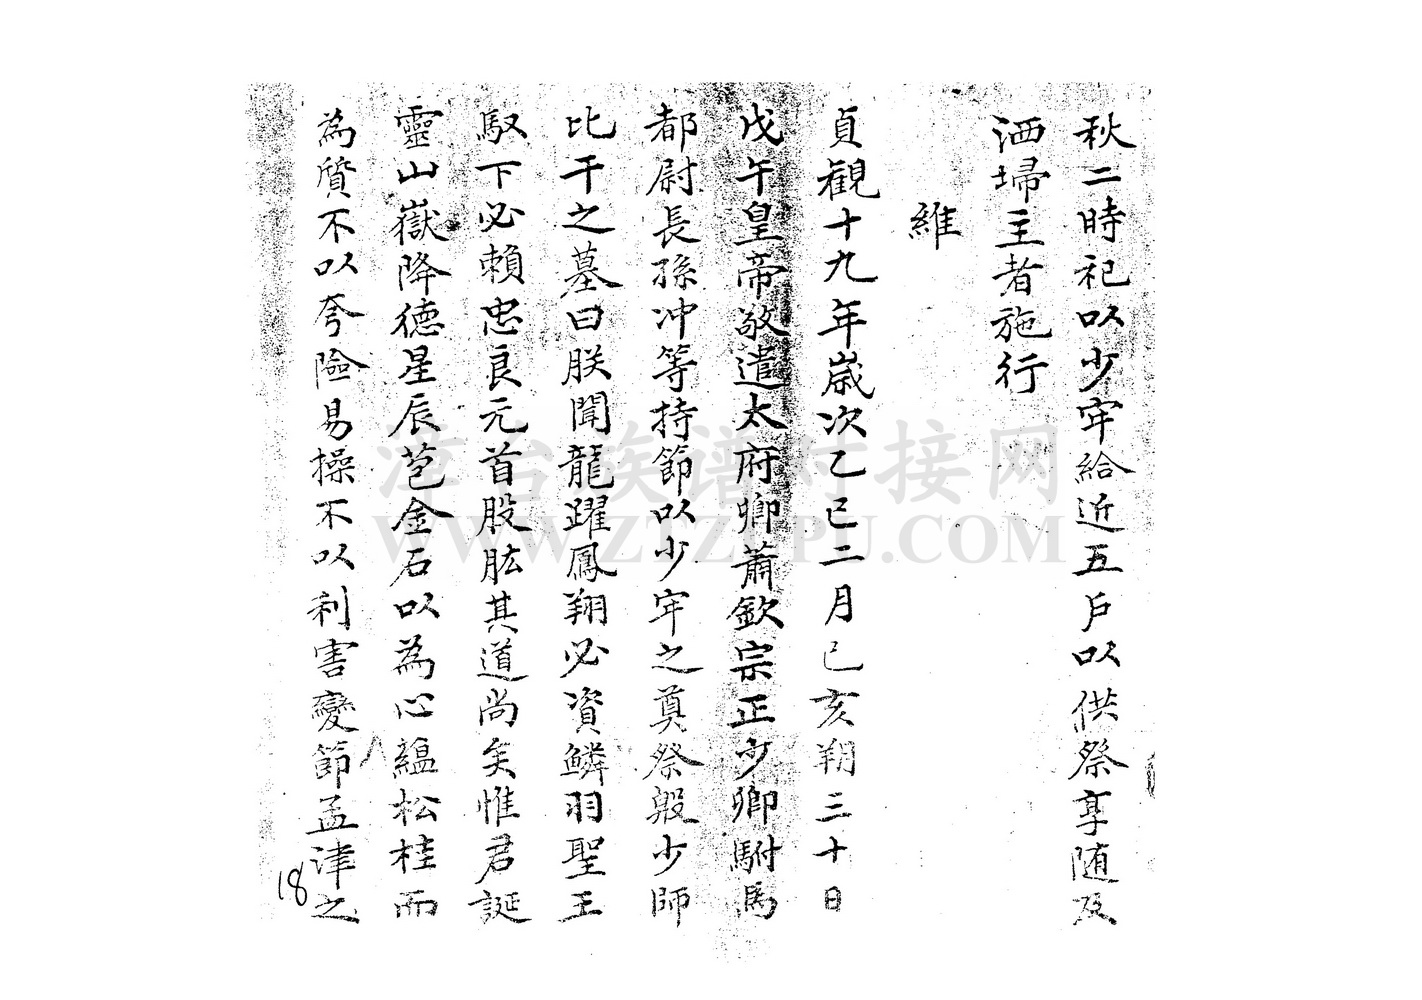 秋二時祀以少牢給近五戶以供祭享随及
洒埽主者施行
維
貞觀十九年歲次乙巳二月己亥朔三十日
戊午皇帝敬遣太府卿蕭欽宗正少卿駙馬
都尉長孫冲等持節以少牢之奠祭殷少師
比干之墓曰朕聞龍躍鳳翔必資鱗羽聖王
馭下必賴忠良元首股肱其道尚矣惟君誕
靈山嶽降德星辰苞金石以為心蘊松桂而
為質不以夸險易操不以利害變節孟津之
18
漳台族谱对接网
WWW.ZTZUPU.COM